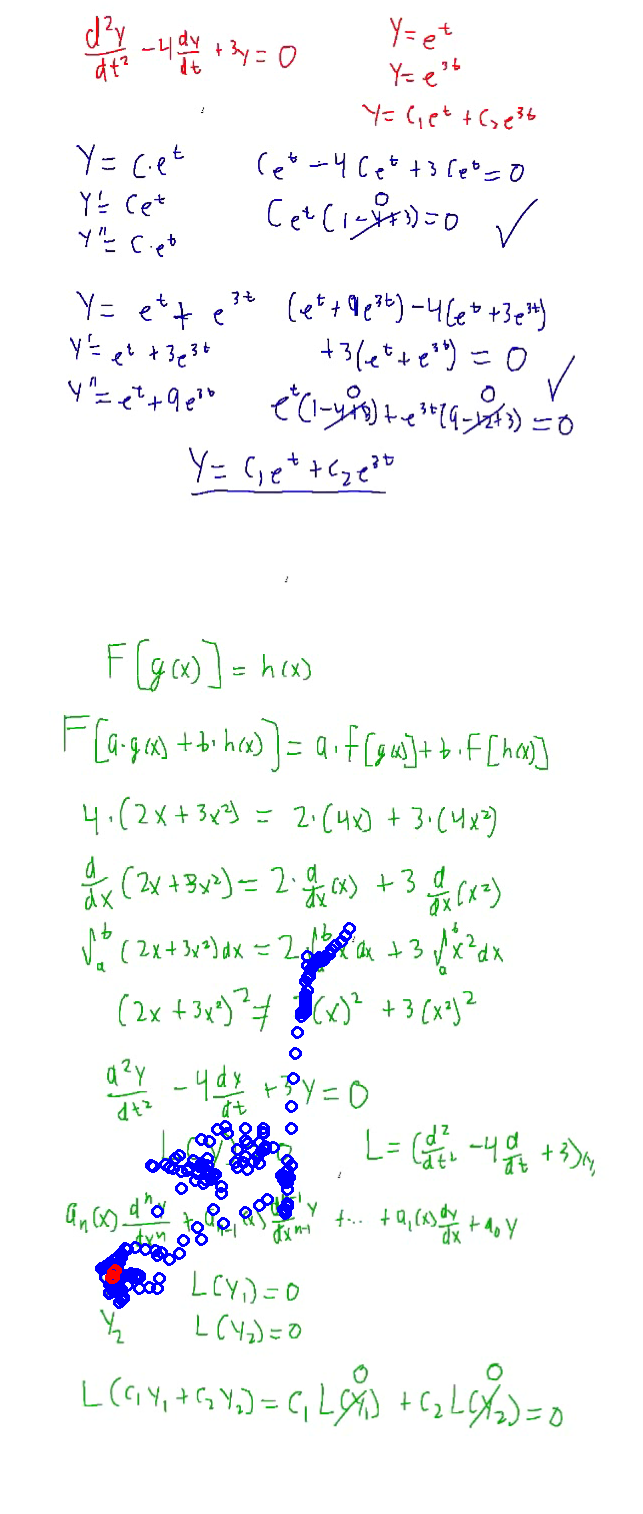 d²y/dt² - 4 dy/dt + 3y = 0
y = e^t
y = e^3t
y = c₁e^t + c₂e^3t
y = c·e^t
Ce^t - 4Ce^t + 3Ce^t = 0
y' = Ce^t
Ce^t(1-4+3) = 0 ✓
0
y'' = C·e^t
y = e^t + e^3t
(e^t + 9e^3t) - 4(e^t + 3e^3t)
y' = e^t + 3e^3t
+3(e^t + e^3t) = 0 ✓
y'' = e^t + 9e^3t
0 0
e^t(1-4+3) + e^3t(9-12+3) = 0
y = c₁e^t + c₂e^3t
F[g(x)] = h(x)
F[a·g(x) + b·h(x)] = a·F[g(x)] + b·F[h(x)]
4·(2x + 3x²) = 2·(4x) + 3·(4x²)
d/dx (2x + 3x²) = 2·d/dx (x) + 3 d/dx (x²)
∫_a^b (2x + 3x²)dx = 2 x dx + 3 ∫_a^b x² dx
(2x + 3x²)² ≠ (x)² + 3(x²)²
d²y/dt² - 4 dy/dt + 3y = 0
L = (d²/dt² - 4 d/dt + 3)
a_n(x) dⁿy/dxⁿ + + ... + a₁(x) dy/dx + a₀y
L(y₁) = 0
y₂
L(y₂) = 0
0 0
L(c₁y₁ + c₂y₂) = c₁L(y₁) + c₂L(y₂) = 0